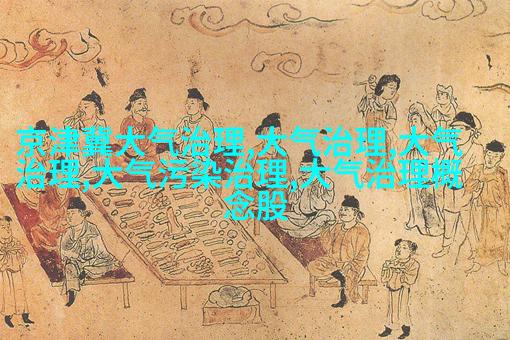 京津冀大气治理,大气治理,大气
治理,大气污染治理,大气治理概
念股